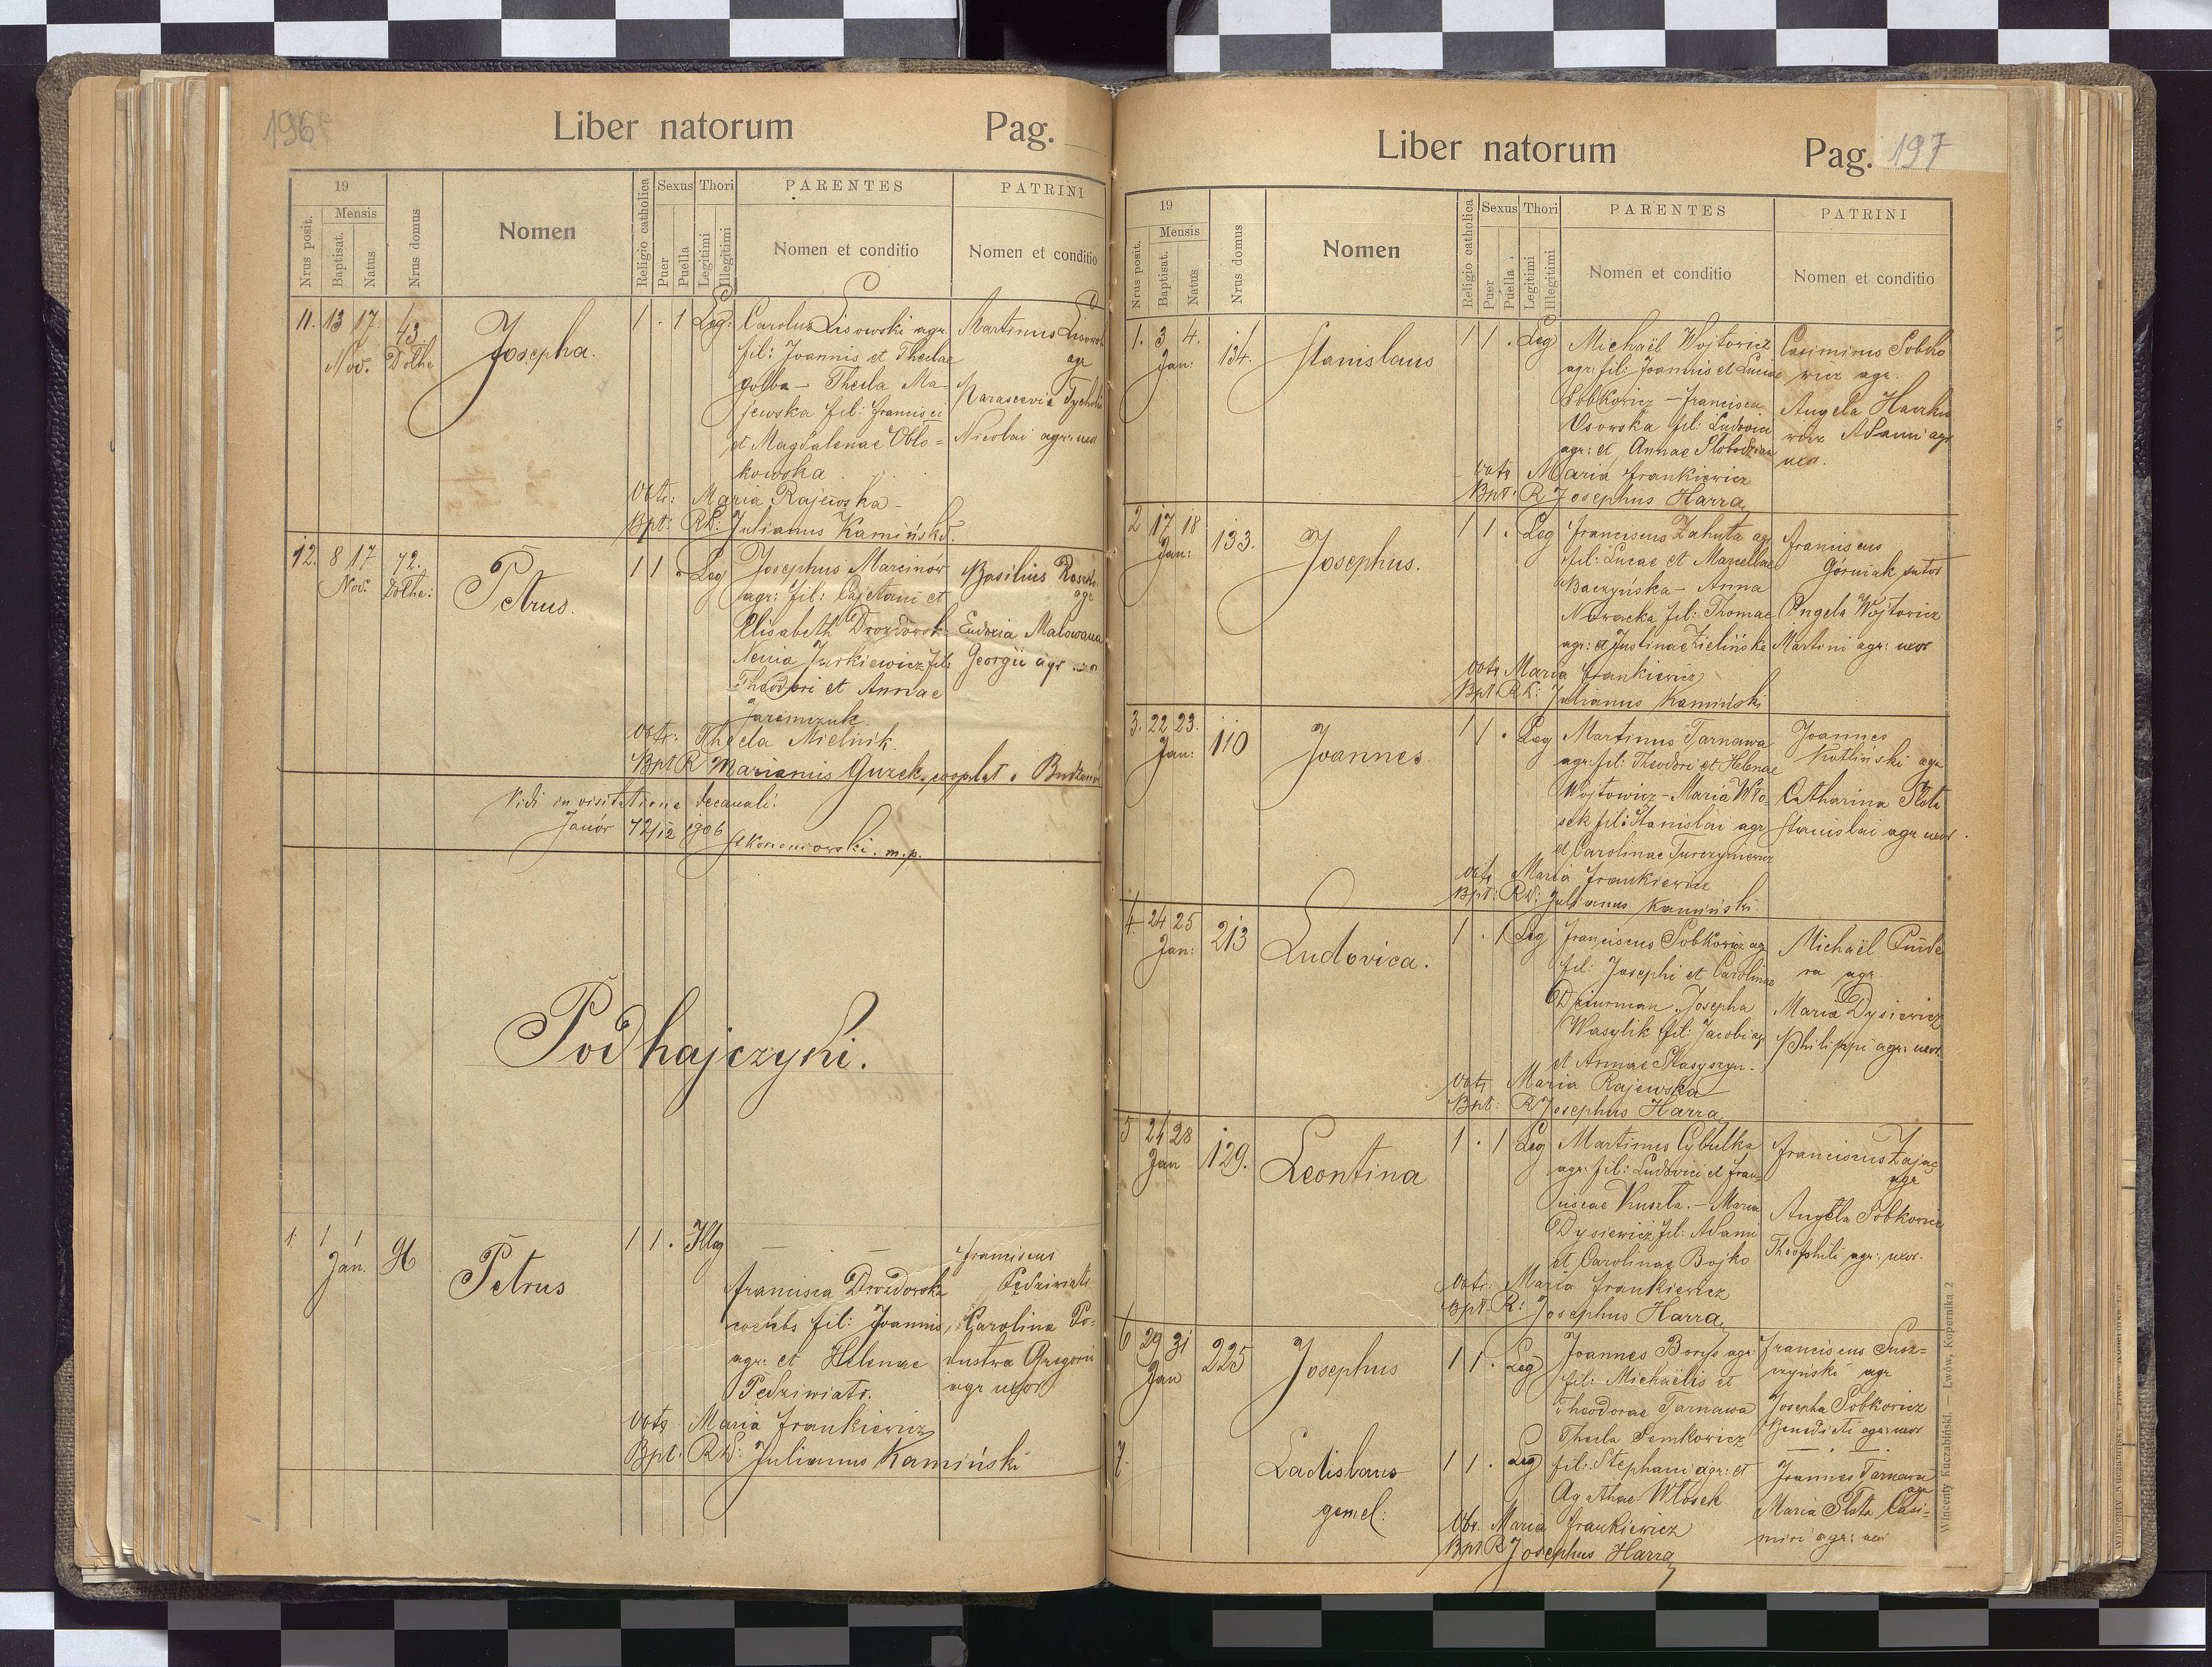 196
Liber natorum Pag.
19
Mensis
Nrus posit.
Baptisat.
Natus
Nrus domus
Nomen
Religio catholica
Sexus
Puer
Puella
Thori
Legitimi
Illegitimi
PARENTES
Nomen et conditio
PATRINI
Nomen et conditio
11. 13 17. 43. Josepha. 1 . 1 Leg: Carolus Lisowski agr. Martinus
Nov. Dolhe fil: Joannis et Theclae agr
Golba – Thecla Ma- Parascevia
jewska fil: Francisci
et Magdalenae Obło= Nicolai agr: uxor
kowska
Obst: Maria Rajewska
Bpt: RD: Julianus Kamiński.
12. 8 17 72. Petrus. 1 1 . Leg Josephus Marcinow Basilius
Nov. Dolhe: agr: fil: Cajetani et agr
Elisabeth Drozdowsk. Eudoxia Malowana
Jurkiewicz fil: Georgii agr
Theodori et Annae
Jaremczuk.
Obstr. Thecla Mielnik.
Bpt R Marianus Guzek, cooplat
Vidi in visitatione decanali.
Janów 12/12 1906
m.p.
Podhajczyki.
1. 1 1 91 Petrus 1 1 . Illeg — —
Jan. Franciscus
Francisca Drozdowska Pędziwiatr
fil: Joannis, Carolina Po-
agr. et Helenae dustwa Gregorii
Pędziwiatr. agr uxor
Obstr Maria Frankiewicz
Bpt. RD: Julianus Kamiński
Liber natorum Pag. 197
19
Mensis
Nrus posit.
Baptisat.
Natus
Nrus domus
Nomen
Religio catholica
Sexus
Puer
Puella
Thori
Legitimi
Illegitimi
PARENTES
Nomen et conditio
PATRINI
Nomen et conditio
1. 3 4. 134. Stanislaus 1 1 . Leg Michaël Wojtowicz Casimirus Sobko
Jan: agr: fil: Joannis et Luciae wicz agr.
Sobkowicz – Francisca Angela
Usowska fil: Ludovici wicz Adami agr
agr: et Annae Słobodzian uxor.
Obstr Maria Frankiewicz
Bpt: R Josephus Harra
2 17 18 133. Josephus. 1 1 . Leg Franciscus Zahuta agr Franciscus
Jan: fil: Lucae et Marcellae Górniak sutor
Baczyńska – Anna
Nowacka fil: Thomae Angela Wojtowicz
agr: et Justinae Zielińska Martini agr: uxor
Obstr Maria Frankiewicz
Bpt. RD: Julianus Kamiński
3. 22 23. 110 Joannes 1 1 . Leg Martinus Tarnawa Joannes
Jan: agr: fil: Theodori et Helenae Kotliński agr
Wojtowicz – Maria Wło- Catharina Słota
sek fil: Stanislai agr Stanislai agr uxor.
et Carolinae Turczyniewicz
Obstr Maria Frankiewicz
Bpt: RD: Julianus Kamiński.
4. 24 25 213 Ludovica. 1 . 1 Leg Franciscus Sobkowicz agr Michaël
Jan: fil: Josephi et Carolinae ra agr.
Dziurman. Josepha Maria Dysiewicz
Wasylik fil: Jacobi agr Philippi agr: uxor.
et Annae Stasyszyn.
Obstr Maria Rajewska
Bpt: R Josephus Harra
5 24 28 129. Leontina 1 . 1 Leg Martinus Cybulka Franciscus Zając
Jan agr: fil: Ludovici et Fran- agr
ciscae Kuszta. – Maria Angela Sobkowicz
Dysiewicz, fil: Adami Theophili agr: uxor.
et Carolinae Bojko
Obstr: Maria Frankiewicz
Bpt. R: Josephus Harra
6 29 31 225 Josephus 1 1 . Leg Joannes Borys agr: Franciscus Susz=
Jan fil: Michaëlis et czyński agr
Theodorae Tarnawa Josepha Sobkowicz
Thecla Semkowicz Benedicti agr: uxor
7. Ladislaus 1 1 . Leg fil: Stephani agr: et Joannes Tarnawa
gemel: Agathae Włosek agr
Maria Słota Casi=
Obs. Maria Frankiewicz miri agr: uxor
Bpt R Josephus Harra
Wincenty Kuczabiński. — Lwów, Kopernika 2